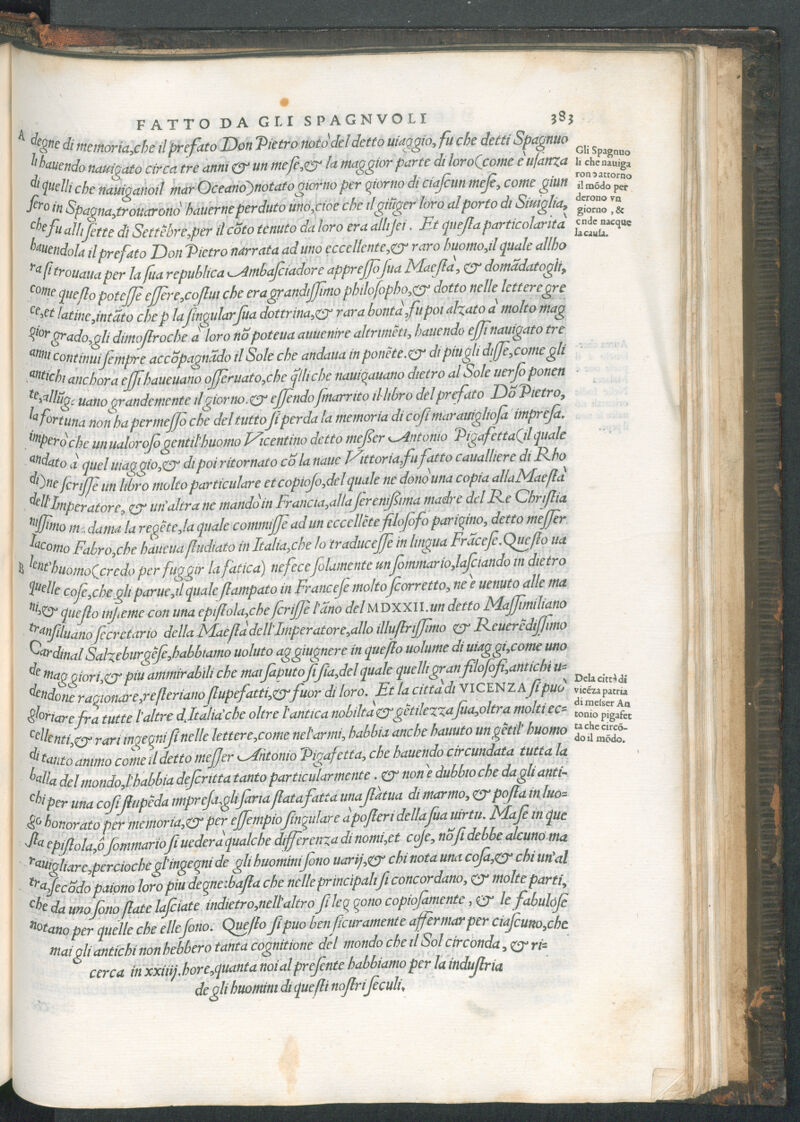 FATTO DA GLI SPAGNVOLI 383
A degne di memoria,che il prefato Don Pietro notò del detto uiaggio, fu che detti Spagnuo
li hauendo nauigato circa tre anni & un mese,& la maggior parte di loro(come è usanza
di quelli che nauiganoil mar Oceano)notato giorno per giorno di ciascun mese, come giun
sero in Spagna,trouarono hauerne perduto uno,cioe che il giũger loro al porto di Siuiglia,
che fu alli sette di Settẽbre,per il cõto tenuto da loro era alli sei. Et questa particolarità
hauendola il prefato Don Pietro narrata ad uno eccellente,& raro huomo,il quale allho
ra si trouaua per la sua republica Ambasciadore appresso sua Maestà, & domãdatogli,
come questo potesse essere,costui che era grandissimo philosopho,& dotto nelle lettere gre
ce,et latine,intãto che p la singular sua dottrina,& rara bontà,fu poi alzato à molto mag
gior grado,gli dimostroche à loro nõ poteua auuenire altrimẽti, hauendo essi nauigato tre
anni continui sempre accõpagnãdo il Sole che andaua in ponẽte.& di piu gli disse,come gli
antichi anchora essi haueuano osseruato,che q̃lli che nauigauano dietro al Sole uerso ponen
te,allũgauano grandemente il giorno.& essendo smarrito il libro del prefato Dõ Pietro,
la fortuna non ha permesso che del tutto si perda la memoria di cosi marauigliosa impresa.
impero che un ualoroso gentil'huomo Vicentino detto meßer Antonio Pigafetta(il quale
andato à quel uiaggio,& di poi ritornato cõ la naue Vittoria,fu fatto caualliere di Rho
di)ne scrisse un libro molto particulare et copioso,del quale ne donò una copia alla Maestà
dell'Imperatore, & un'altra ne mandò in Francia,alla serenißima madre del Re Christia
nissimo madama la regẽte,la quale commisse ad un eccellẽte filosofo parigino, detto messer
Iacomo Fabro,che haueua studiato in Italia,che lo traducesse in lingua Frãcese.Questo ua
B lent'huomo(credo per fuggir la fatica) nefece solamente un sommario,lasciando in dietro
quelle cose,che gli parue,il quale stampato in Francese molto scorretto, ne è uenuto alle ma
ni,& questo insieme con una epistola,che scrisse l'ãno del MDXXII.un detto Massimiliano
transiluano secretario della Maestà dell'Imperatore,allo illustrissimo & Reuerẽdissimo
Cardinal Salzeburgẽse,habbiamo uoluto aggiugnere in questo uolume di uiaggi,come uno
de maggiori,& piu ammirabili che mai saputo si sia,del quale quelli gran filosofi,antichi u=
dendone ragionare,resteriano stupefatti,& fuor di loro. Et la città di VICENZA si può
gloriare frà tutte l'altre d'Italia'che oltre l'antica nobiltà & gẽtilezza sua,oltra molti ec=
cellenti,& rari ingegni si nelle lettere,come nel'armi, habbia anche hauuto un gẽtil' huomo
di tanto animo come il detto messer Antonio Pigafetta, che hauendo circundata tutta la
balla del mondo,l'habbia descritta tanto particularmente. & non è dubbio che da gli anti-
chi per una cosi stupẽda impresa,gli saria stata fatta una stàtua di marmo, & posta in luo=
go honorato per memoria,& per essempio singulare à posteri della sua uirtu. Ma se in que
sta epistola,ò sommario si uederà qualche differenza di nomi,et cose, nõ si debbe alcuno ma
rauigliare,percioche gl'ingegni de gli huomini sono uarij,& chi nota una cosa,& chi un'al
tra,secõdo paiono loro piu degne:basta che nelle principali si concordano, & molte parti,
che da uno sono state lasciate indietro,nell'altro si leggono copiosamente, & le fabulose
notano per quelle che elle sono. Questo si puo ben sicuramente affermar per ciascuno,che
mai gli antichi non hebbero tanta cognitione del mondo che il Sol circonda, & ri=
cerca in xxiiij.hore,quanta noi al presente habbiamo per la industria
de gli huomini di questi nostri seculi.
Gli Spagnuo
li che nauiga
ron attorno
il mõdo per
derono vn
giorno, &
ende nacque
la causa.
Dela città di
vicẽza patria
di messer An
tonio pigafet
ta che circõ-
do il mõdo.